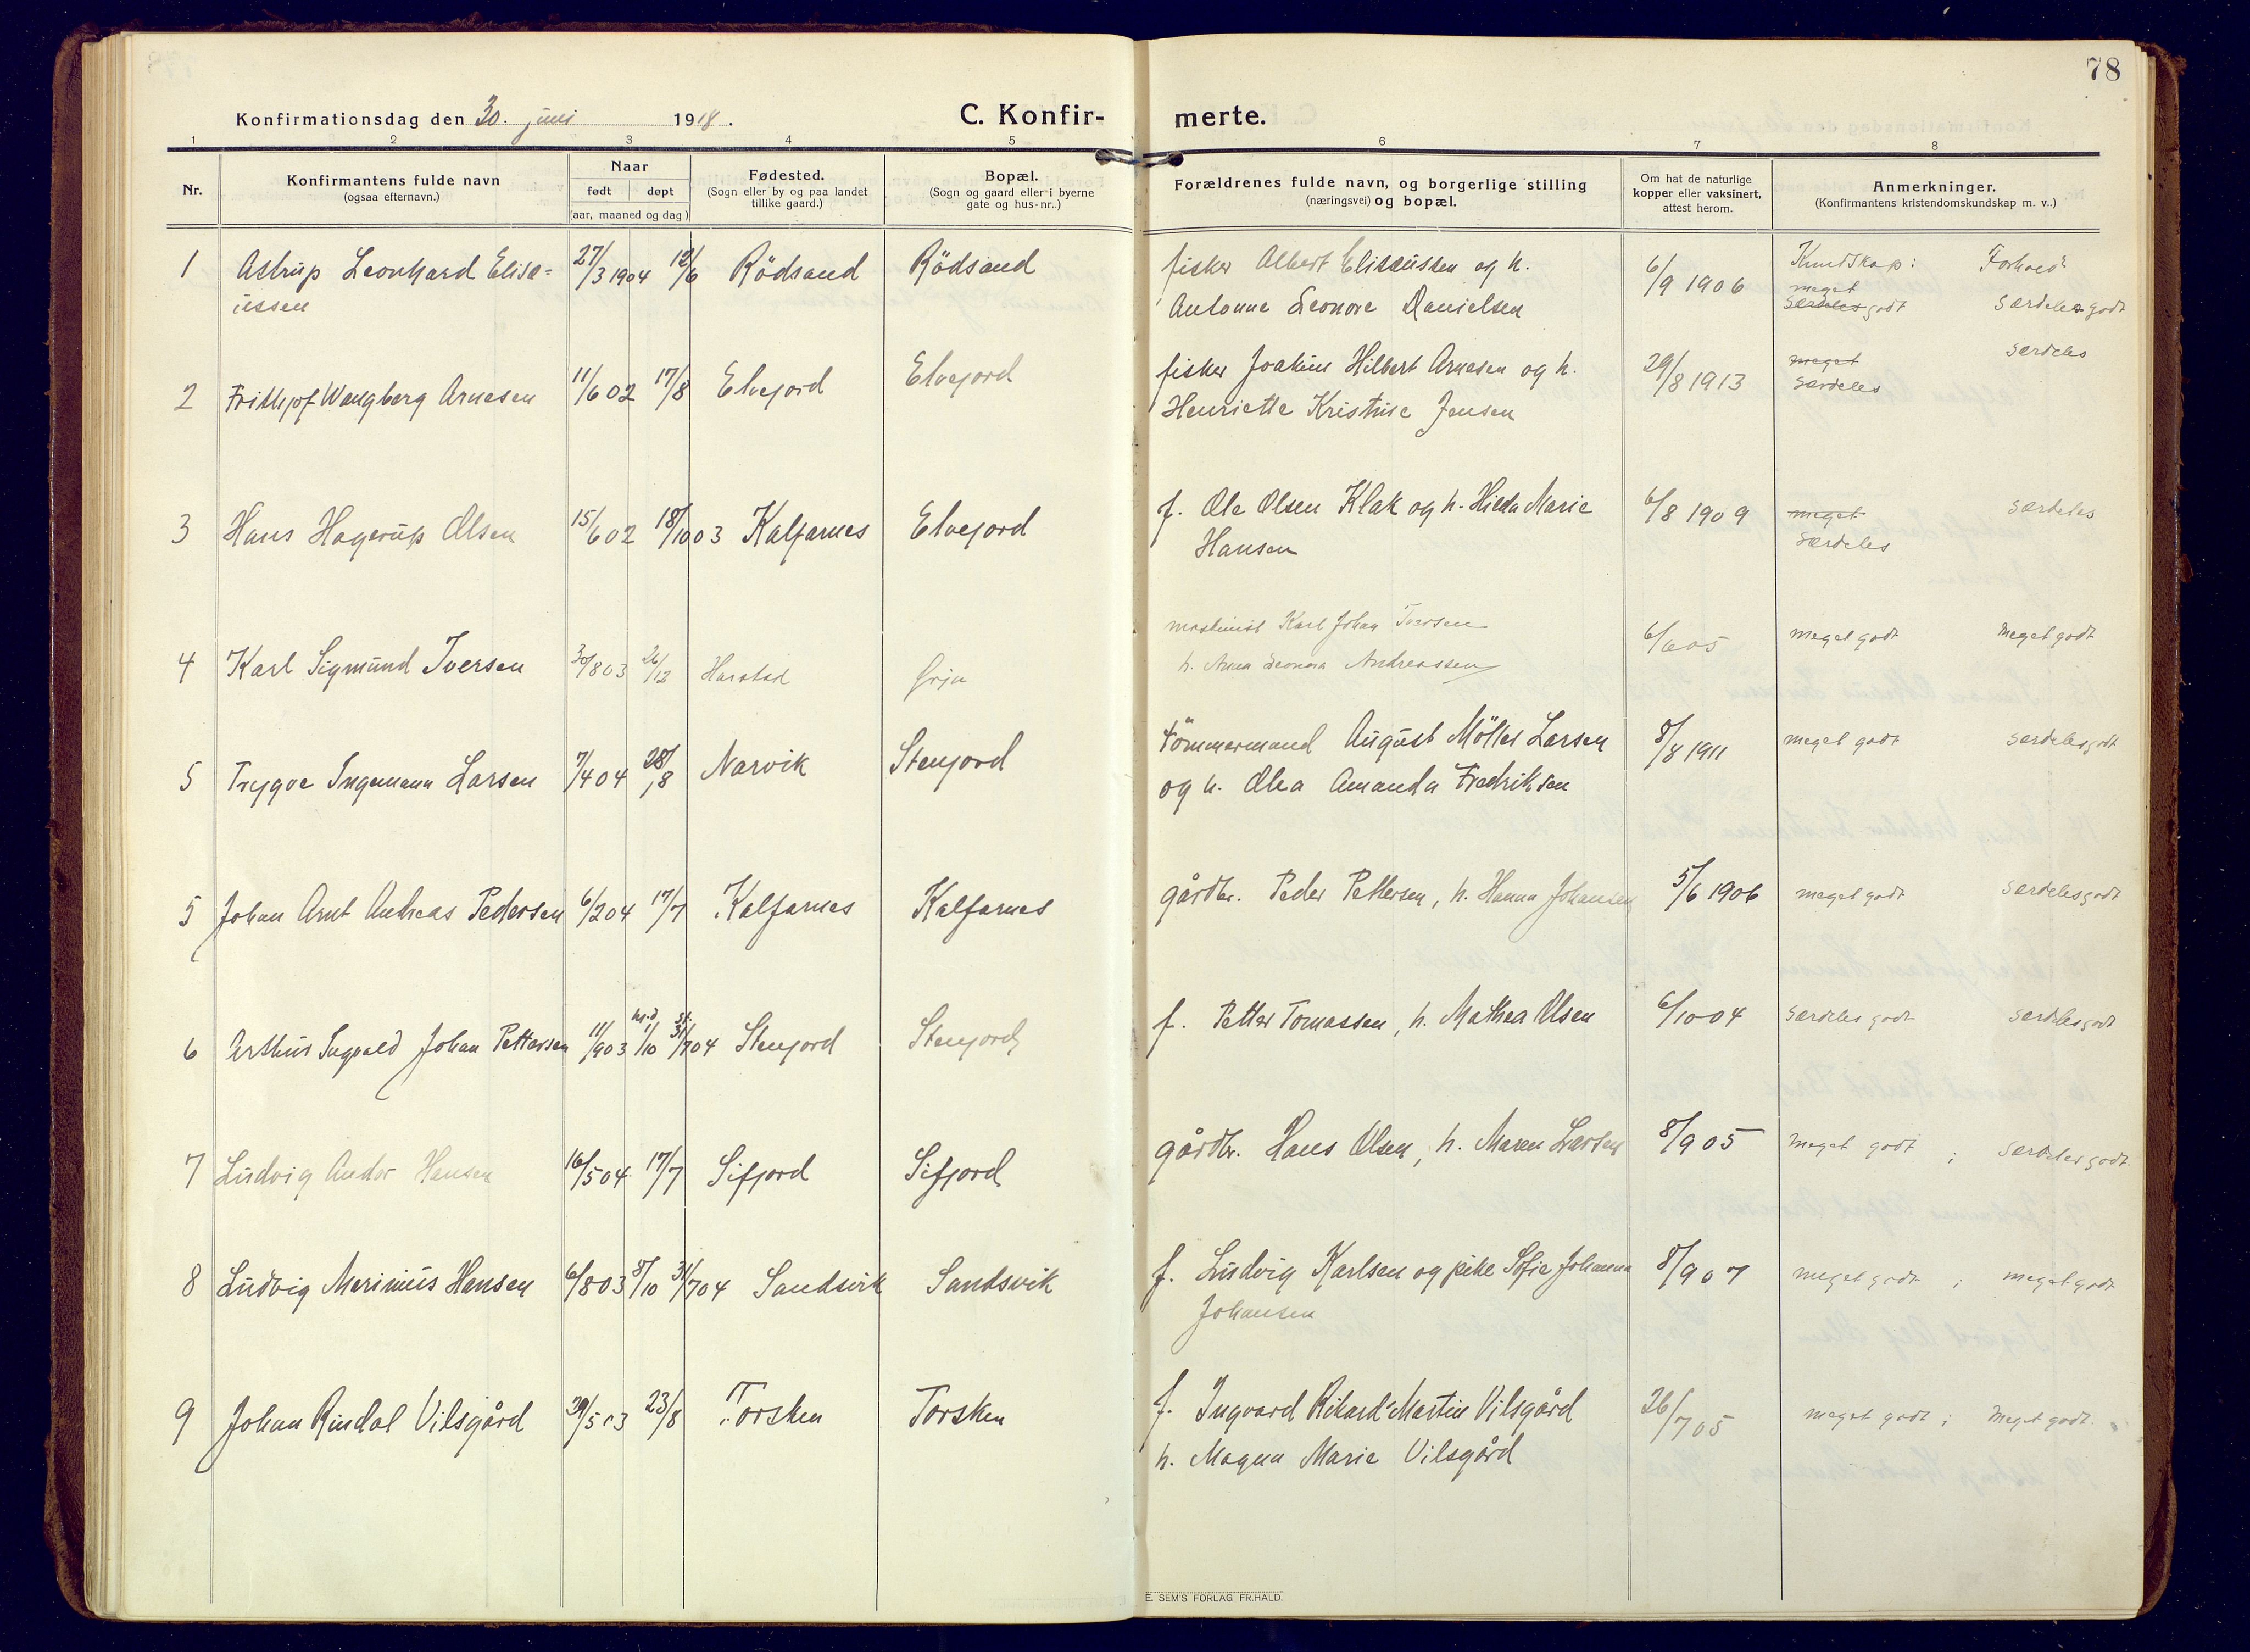 78
Konfirmationsdag den 30. juni 1918.
C. Konfirmerte.
1 2 3 4 5 6 7 8
Nr.
Konfirmantens fulde navn
(ogsaa efternavn.)
Naar
født døpt
(aar, maaned og dag)
Fødested.
(Sogn eller by og paa landet
tillike gaard.)
Bopæl.
(Sogn og gaard eller i byerne
gate og hus-nr..)
Forældrenes fulde navn, og borgerlige stilling
(næringsvei) og bopæl.
Om hat de naturlige
kopper eller vaksinert,
attest herom.
Anmerkninger.
(Konfirmantens kristendomskundskap m. v..)
1 Astrup Leonhard Elisæ= 27/3 1904 12/6 Rödsand Rödsand fisker Albert Elisæussen og h. 6/9 1906 Kundskap: Forhold
ussen Antonne Leonore Danielsen meget særdeles godt særdeles godt
2 Frithjof Wangberg Arnesen 11/6 02 17/8 Elvejord Elvejord fisker Joakim Hilbert Arnesen og h. 29/8 1913 meget særdeles særdeles
Henriette Kristine Jensen
3 Hans Hagerup Olsen 15/6 02 18/10 03 Kalfarnes Elvejord f. Ole Olsen Klak og h. Hilda Marie 6/8 1909 meget særdeles særdeles
Hansen
4 Karl Sigmund Iversen 30/8 03 26/12 Harstad Gryn maskinist Karl Johan Iversen 6/6 05 meget godt meget godt
h. Anna Leonora Andreassen
5 Trygve Ingemann Larsen 7/4 04 28/8 Narvik Stenjord tömmermand August Möller Larsen 8/8 1911 meget godt særdeles godt
og h. Olea Amanda Fredriksen
5 Johan Arnt Andreas Pedersen 6/2 04 17/7 Kalfarnes Kalfarnes gårdbr. Peder Pettersen, h. Hanna Johansen 5/6 1906 meget godt særdeles godt
6 Arthur Ingvald Johan Pettersen 11/9 03 hj.d. 1/10 st. 31/7 04 Stenjord Stenjord f. Petter Tomassen, h. Mathea Olsen 6/10 04 særdeles godt særdeles godt
7 Ludvig Andor Hansen 16/5 04 17/7 Sifjord Sifjord gårdbr. Hans Olsen, h. Maren Larsen 8/9 05 meget godt ; særdeles godt.
8 Ludvig Marinius Hansen 6/8 03 8/10 31/7 04 Sandsvik Sandsvik f. Ludvig Karlsen og pike Sofie Johanna 8/9 07 meget godt ; meget godt
Johansen
9 Johan Rindal Vilsgård 29/5 03 23/8 Torsken Torsken f. Ingvard Rikard Martin Vilsgård 26/7 05 meget godt ; meget godt.
h. Magna Marie Vilsgård
E. SEM'S FORLAG FR.HALD.